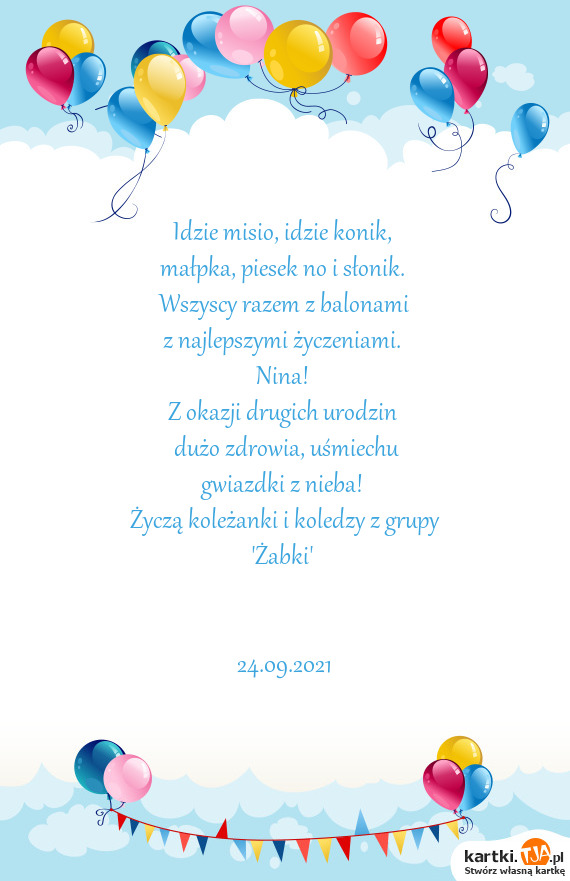 Idzie misio, idzie konik,
małpka, piesek no i słonik.
Wszyscy razem z balonami
z najlepszymi życzeniami.
Nina!
Z okazji drugich urodzin
dużo zdrowia, uśmiechu
gwiazdki z nieba!
Życzą koleżanki i koledzy z grupy
'Żabki'
24.09.2021
kartki.TJA.pl
Stwórz własną kartkę